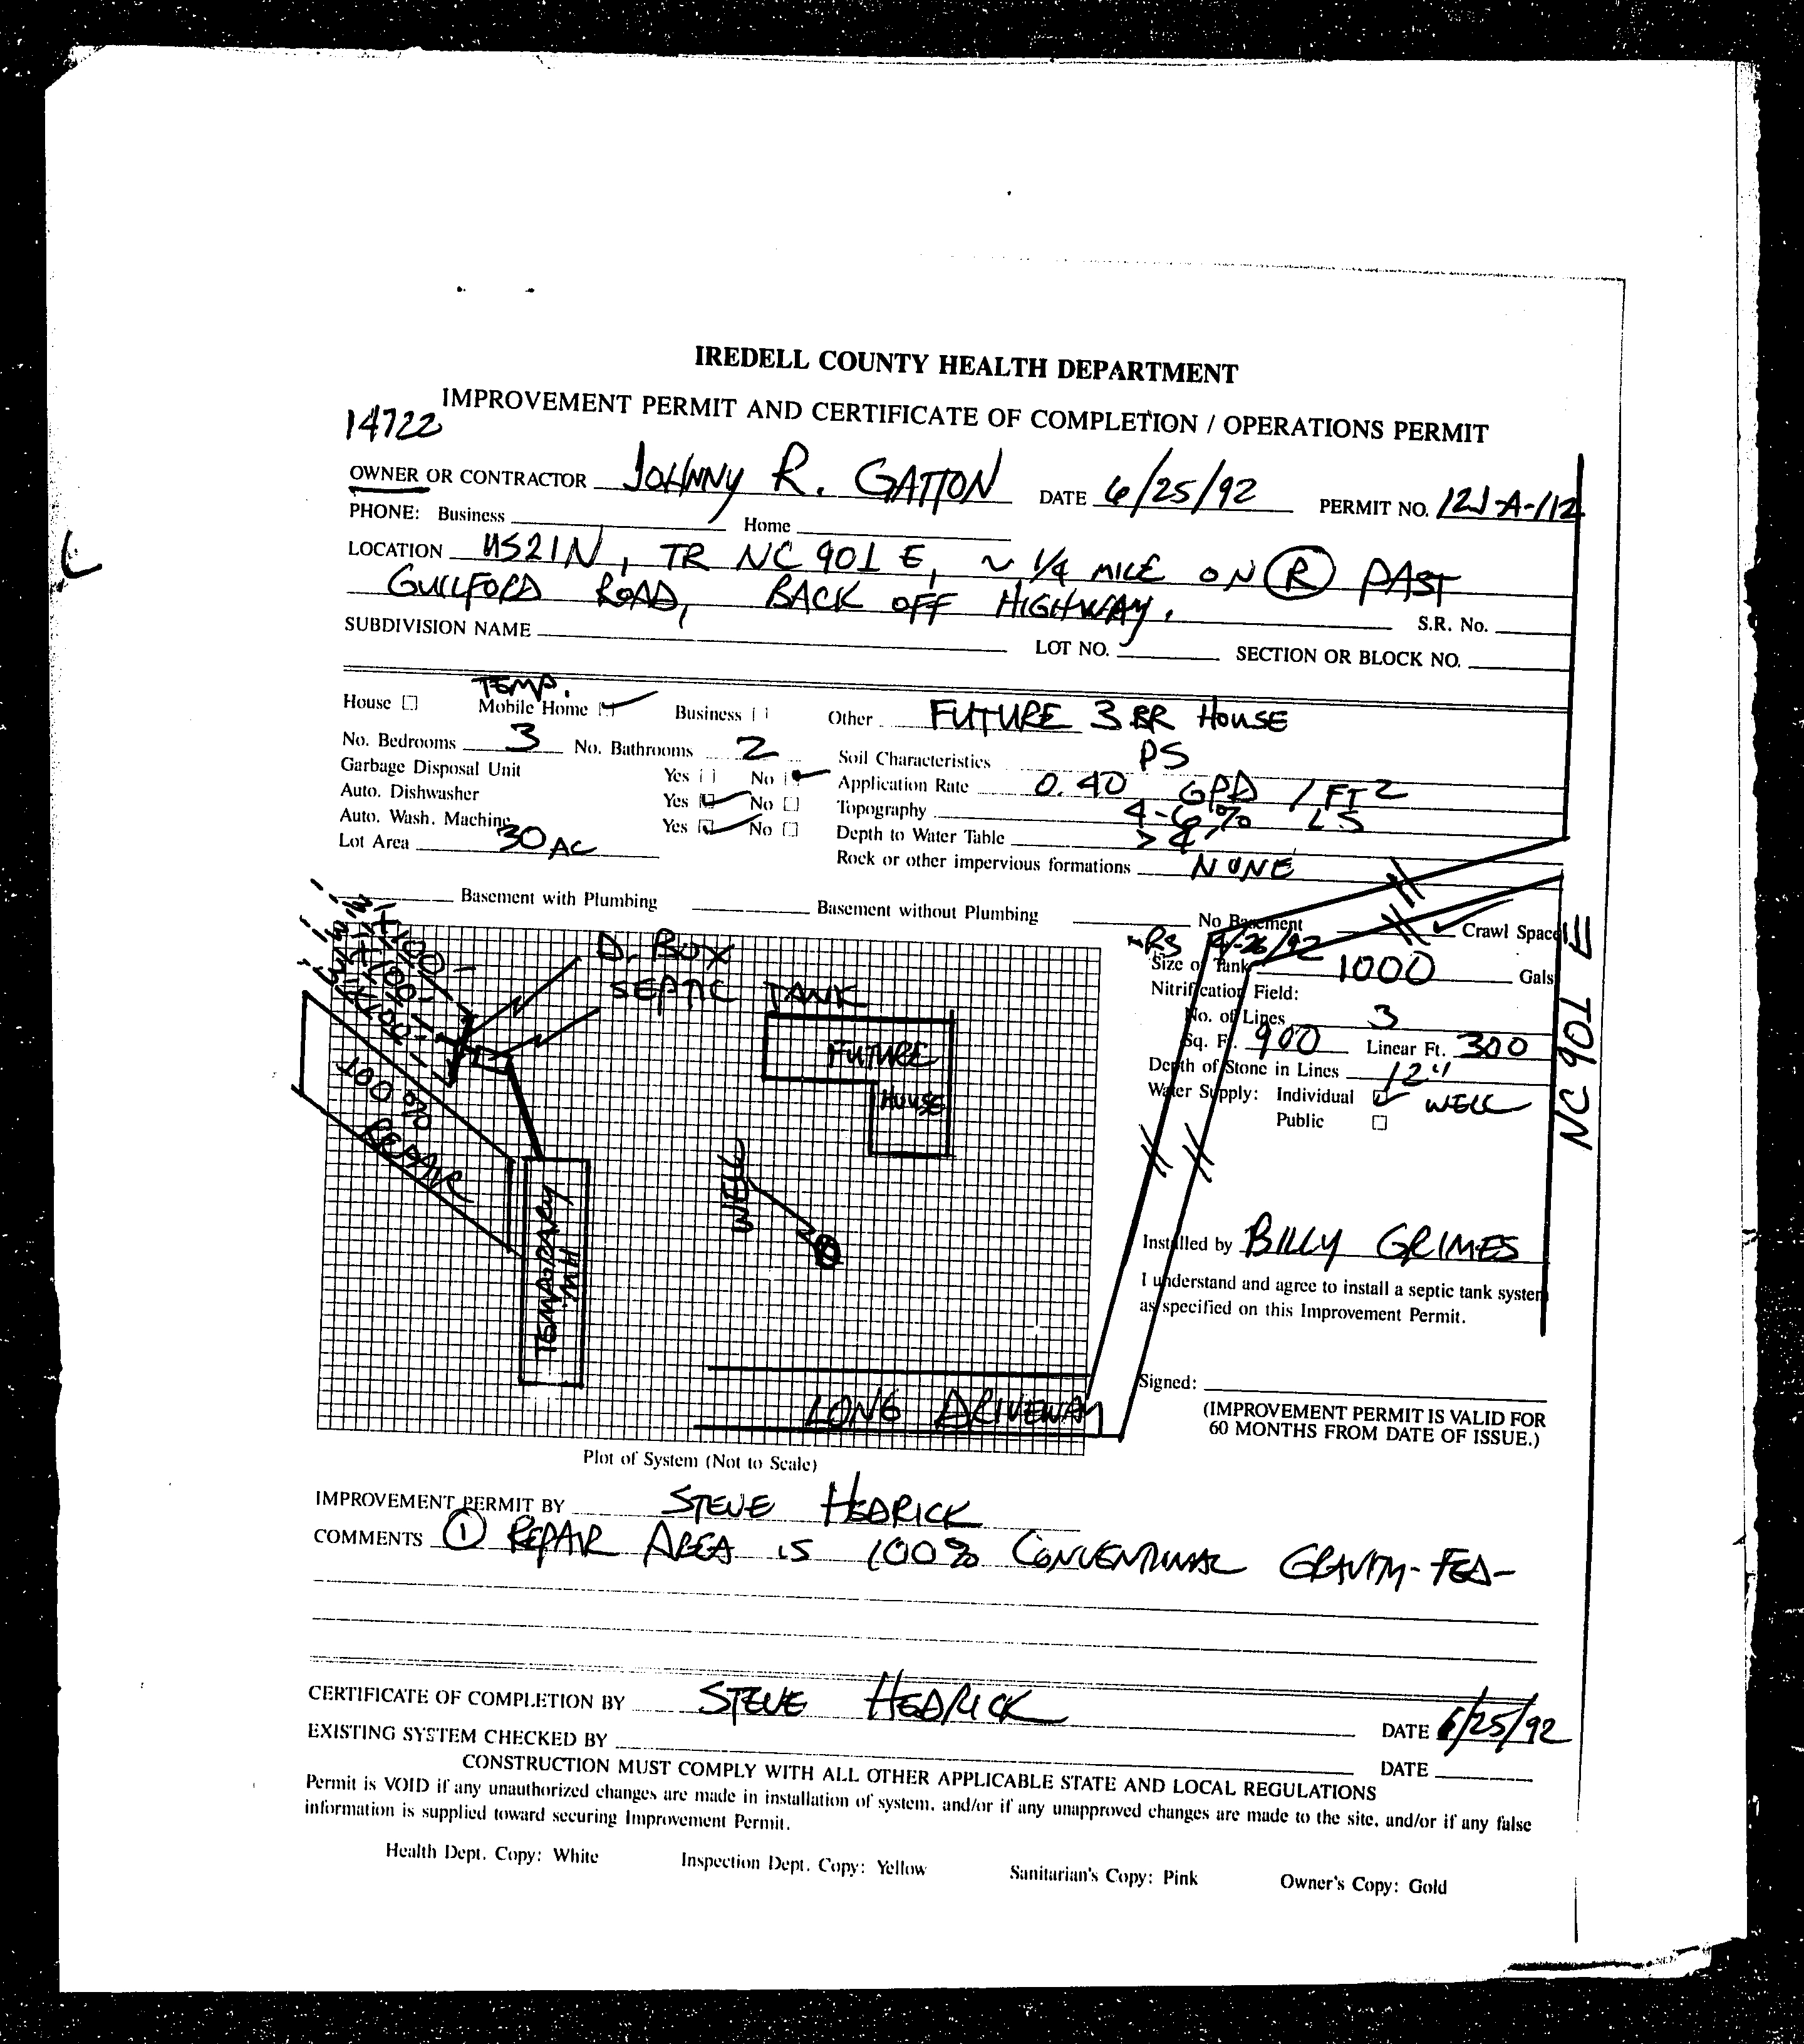 IREDELL COUNTY HEALTH DEPARTMENT
IMPROVEMENT PERMIT AND CERTIFICATE OF COMPLETION / OPERATIONS PERMIT
14722
OWNER OR CONTRACTOR JOHNNY R. GATTON DATE 6/25/92 PERMIT NO. 12J-A-112
PHONE: Business Home
LOCATION US21N, TR NC 901 E, ~ 1/4 MILE ON R PAST
GUILFORD ROAD, BACK OFF HIGHWAY. S.R. No.
SUBDIVISION NAME LOT NO. SECTION OR BLOCK NO.
TEMP.
House Mobile Home Business Other FUTURE 3 BR HOUSE
No. Bedrooms 3 No. Bathrooms 2 Soil Characteristics PS
Garbage Disposal Unit Yes No Application Rate 0.40 GPD / FT2
Auto. Dishwasher Yes No Topography 4-6% LS
Auto. Wash. Machine Yes No Depth to Water Table > 4'
Lot Area 30 AC Rock or other impervious formations NONE
Basement with Plumbing Basement without Plumbing No Basement Crawl Space
D. BOX
SEPTIC TANK
FUTURE
HOUSE
100%
REPAIR
WELL
TEMPORARY
MH
LONG DRIVEWAY
NC 901 E
Size of Tank 1000 Gals
Nitrification Field:
No. of Lines 3
Sq. Ft. 900 Linear Ft. 300
Depth of Stone in Lines 12"
Water Supply: Individual WELL
Public
Installed by BILLY GRIMES
I understand and agree to install a septic tank system
as specified on this Improvement Permit.
Signed:
(IMPROVEMENT PERMIT IS VALID FOR
60 MONTHS FROM DATE OF ISSUE.)
Plot of System (Not to Scale)
IMPROVEMENT PERMIT BY STEVE HEDRICK
COMMENTS 1 REPAIR AREA IS 100% CONVENTIONAL GRAVITY-FED-
CERTIFICATE OF COMPLETION BY STEVE HEDRICK DATE 6/25/92
EXISTING SYSTEM CHECKED BY DATE
CONSTRUCTION MUST COMPLY WITH ALL OTHER APPLICABLE STATE AND LOCAL REGULATIONS
Permit is VOID if any unauthorized changes are made in installation of system, and/or if any unapproved changes are made to the site, and/or if any false
information is supplied toward securing Improvement Permit.
Health Dept. Copy: White Inspection Dept. Copy: Yellow Sanitarian's Copy: Pink Owner's Copy: Gold